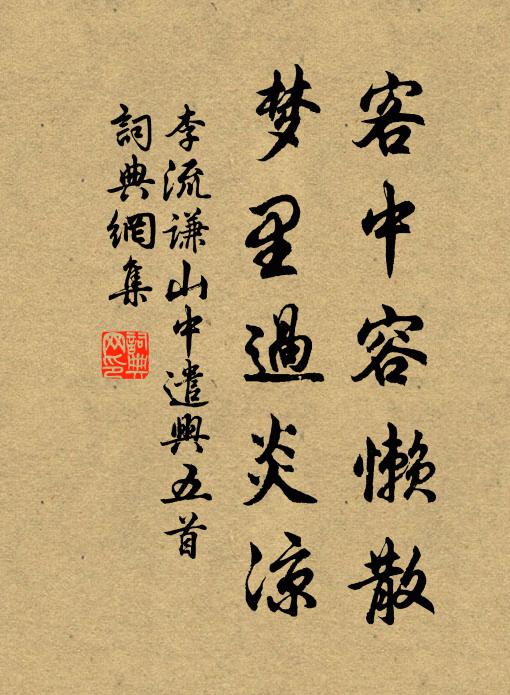 客中容懒散
梦里過炎凉
李流谦山中遣興五首
詞典網集
詞典網印